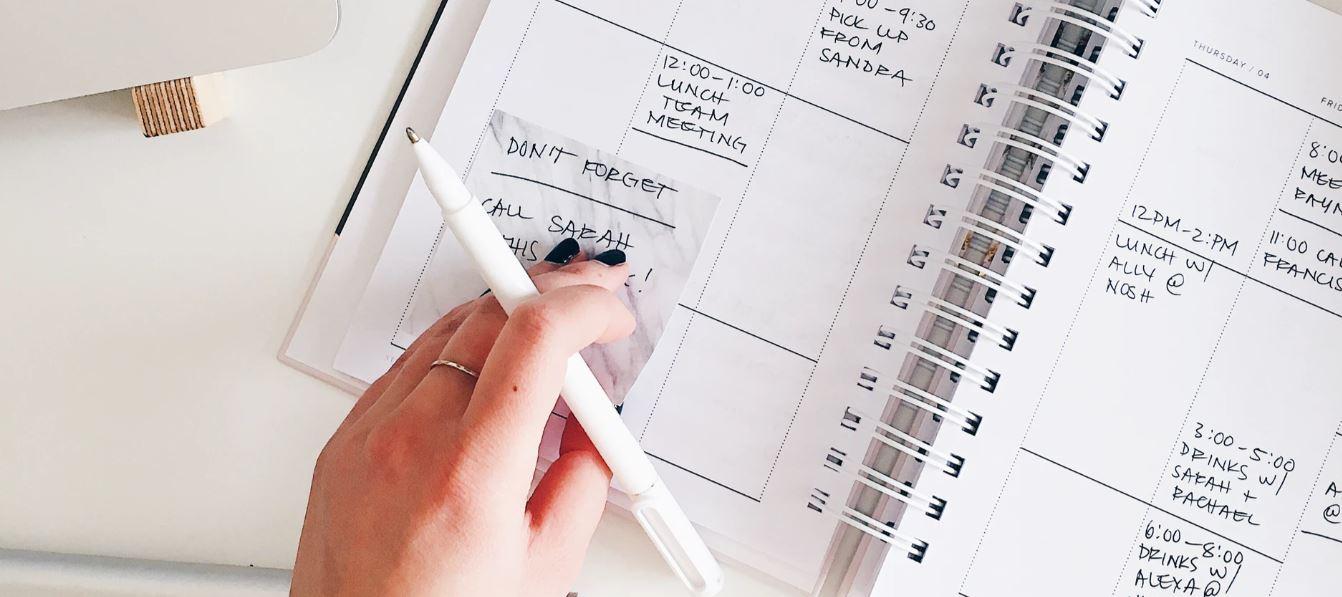 PICK UP
FROM
SANDRA
12:00-1:00
LUNCH
TEAM
MEETING
DON'T FORGET
CALL SARAH
THIS
!
THURSDAY / 04
12PM-2:PM
LUNCH W/
ALLY @
NOSH
3:00-5:00
DRINKS W/
SARAH +
RACHAEL
6:00-8:00
DRINKS W/
ALEXA @
8:0
11:00